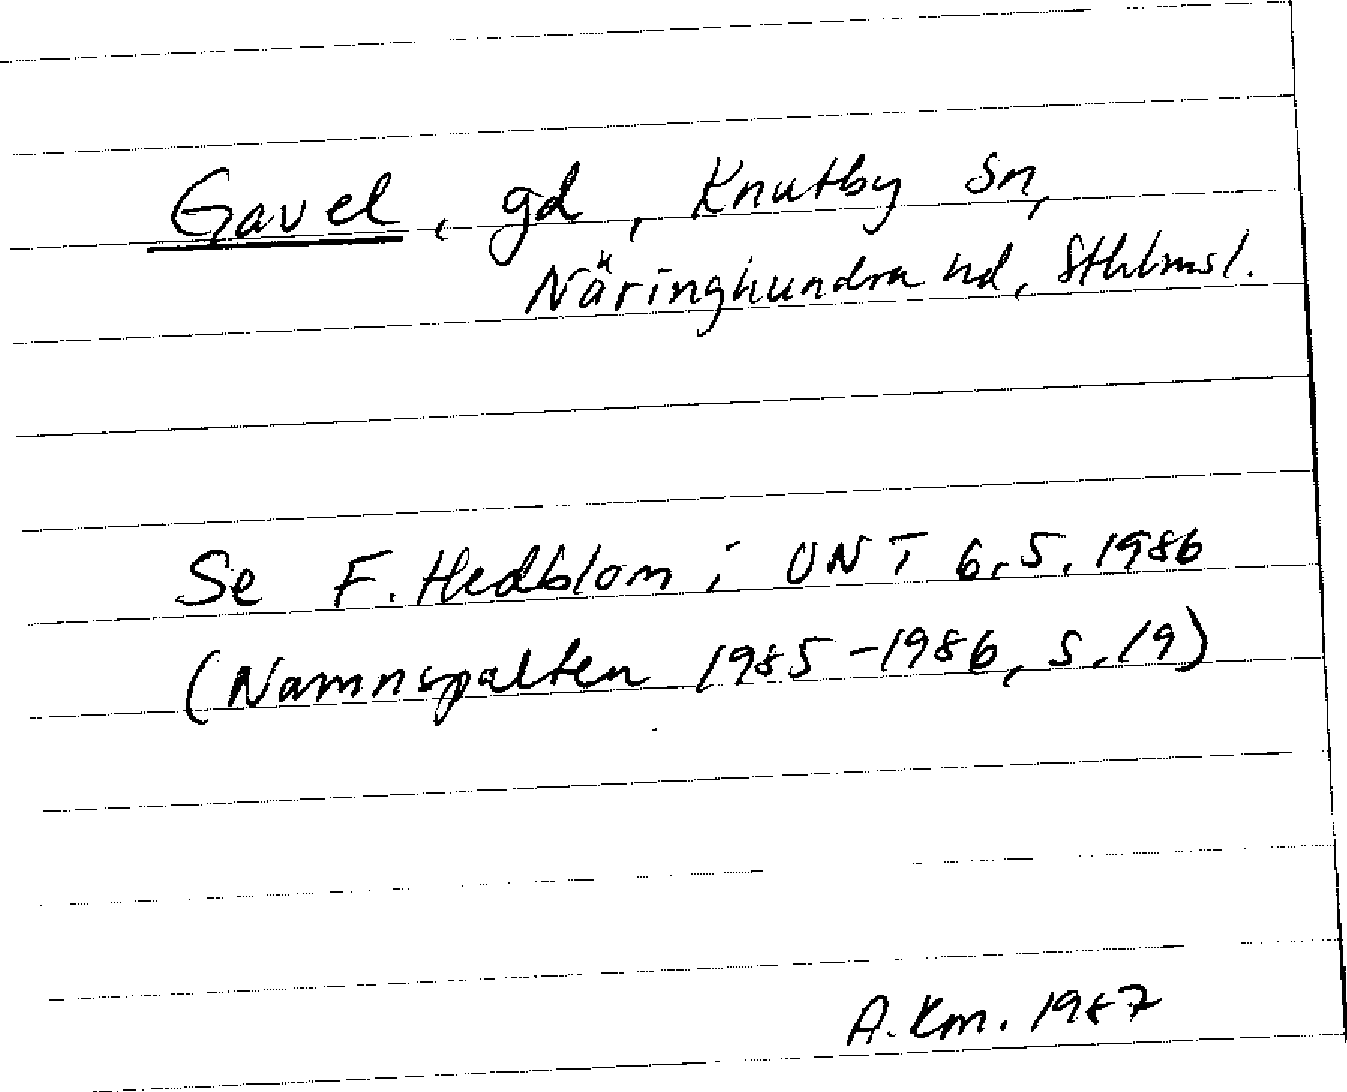 Gavel, gd, Knutby sn,
Näringhundra hd, Sthlmsl.
Se F. Hedblom i UNT 6.5.1986
(Namnspalten 1985-1986, s. 19)
A. Km. 1987